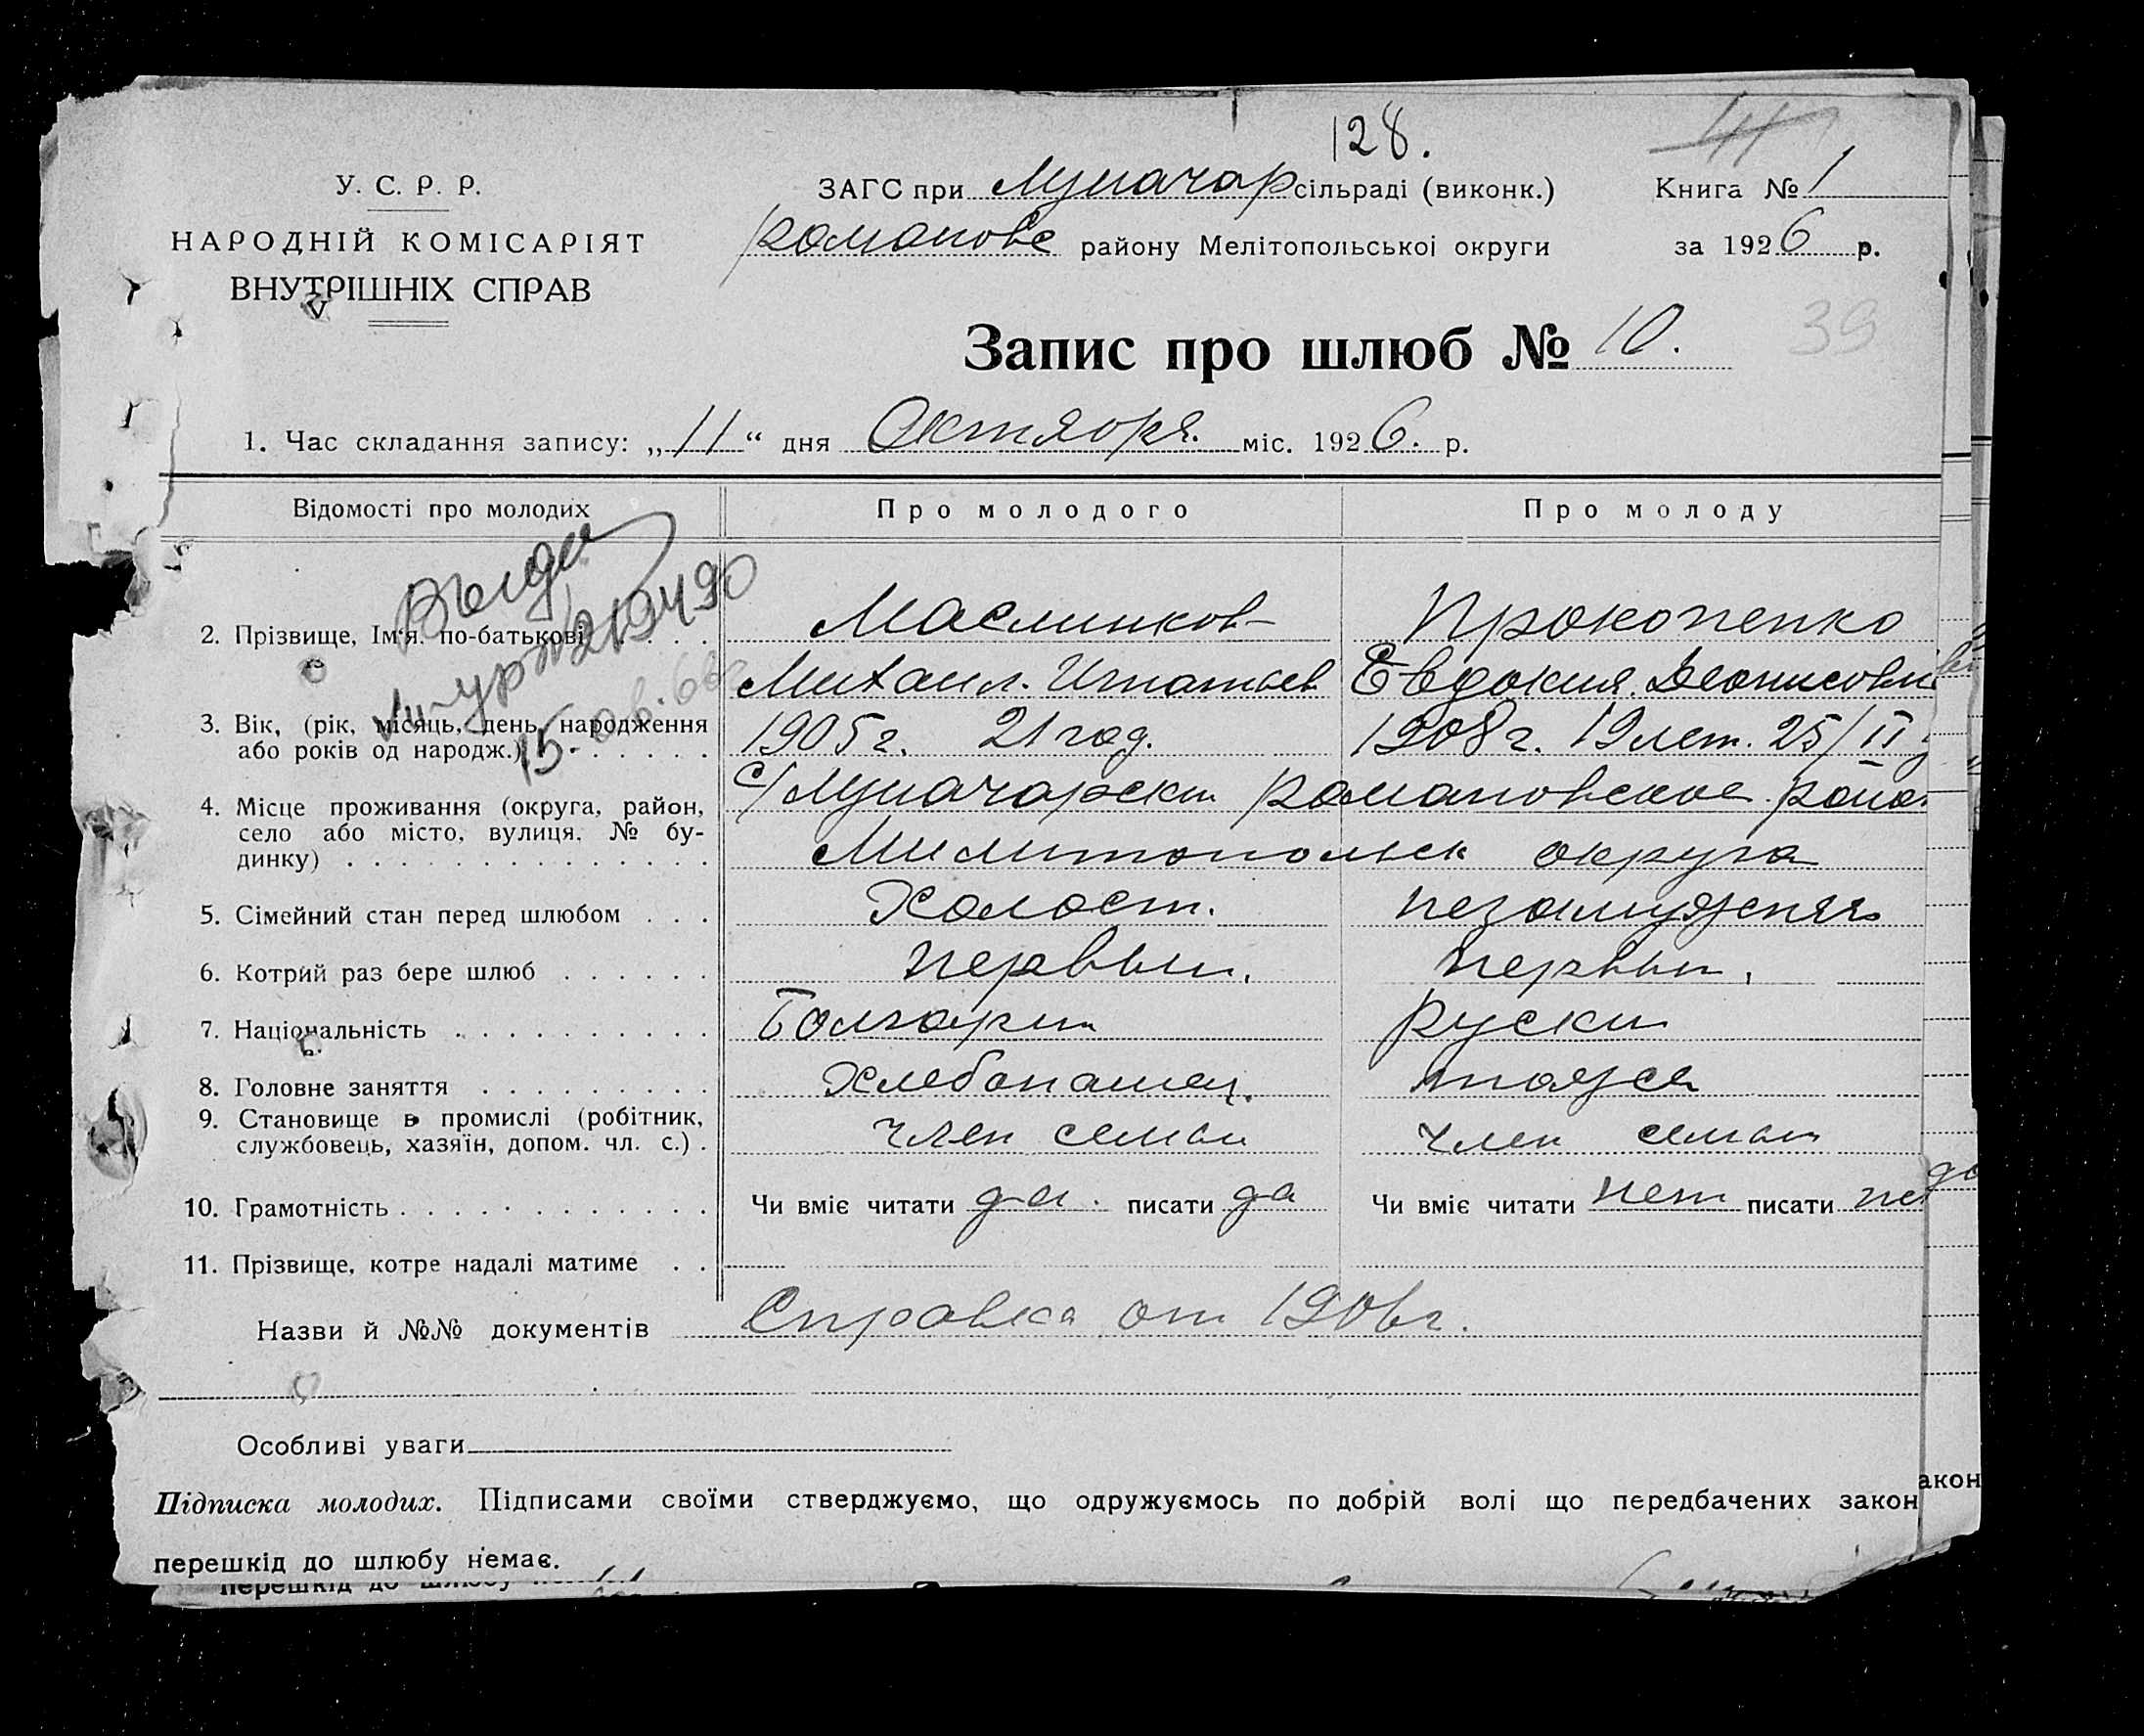 128.
У. С. Р. Р.
НАРОДНІЙ КОМІСАРІЯТ
ВНУТРІШНІХ СПРАВ
ЗАГС при Луначар сільраді (виконк.)
Романовс району Мелітопольськоі округи
Книга № 1
за 1926 р.
39
Запис про шлюб № 10.
1. Час складання запису: „11“ дня Октября. міс. 1926. р.
Відомості про молодих
Про молодого
Про молоду
2. Прізвище, Ім'я. по-батькові
Маслинков
Прокопенко
Михаил. Игнатьев
Евдокия. Деонисовн
3. Вік, (рік, місяць, день, народження
або років од народж.)
1905 г. 21 год.
1908 г. 19 лет. 25/II
4. Місце проживання (округа, район,
село або місто, вулиця, № бу-
динку)
с/Луначарски Романовское. район
Милитопольск округа
5. Сімейний стан перед шлюбом
Холост.
незамужняя
6. Котрий раз бере шлюб
первый.
первый.
7. Національність
Болгарин
Руски
8. Головне заняття
Хлебопашец.
тоже
9. Становище в промислі (робітник,
службовець, хазяїн, допом. чл. с.)
член семьи
член семьи
10. Грамотність
Чи вміє читати да. писати да
Чи вміє читати нет писати не
11. Прізвище, котре надалі матиме
Назви й №№ документів Справка от 1906 г.
Особливі уваги
Підписка молодих. Підписами своїми стверджуємо, що одружуємось по добрій волі що передбачених закон
перешкід до шлюбу немає.